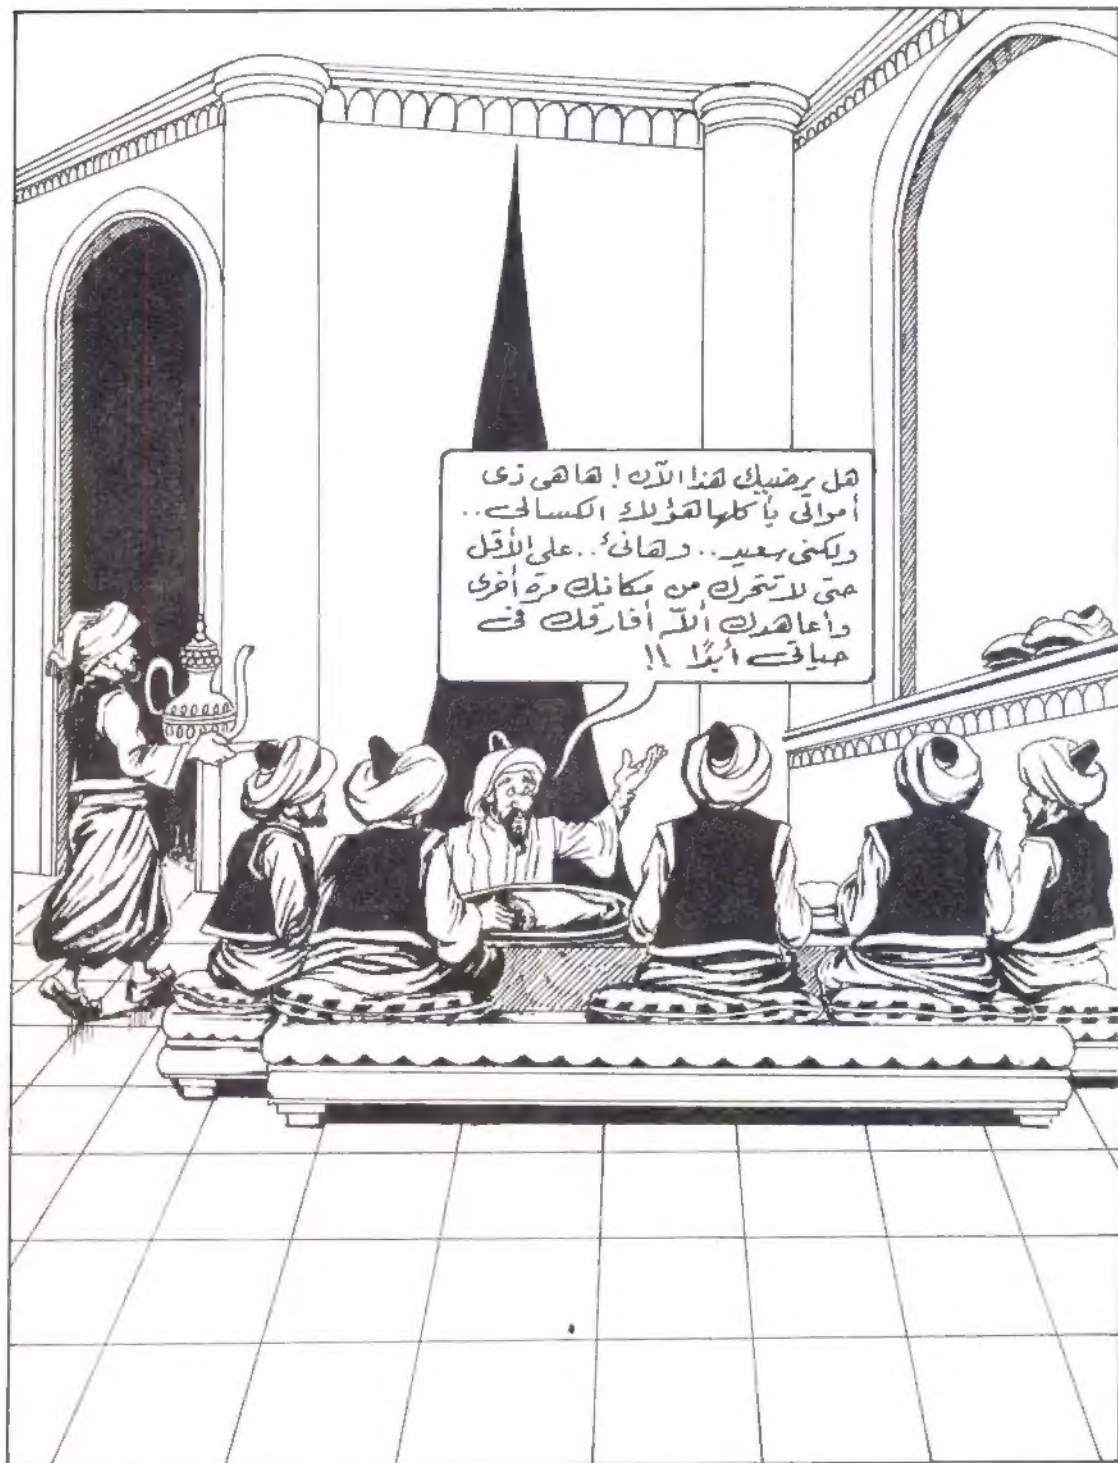 هل يرضيك هذا الآن ! ها هى ذى
أموالى يأكلها هؤلاء الكسالى ..
ولكنى سعيد .. وهانئ .. على الأقل
حتى لا تتحرك من مكانك مرة أخرى
وأعاهدك ألاّ أفارقك فى
حياتى أبدًا !!